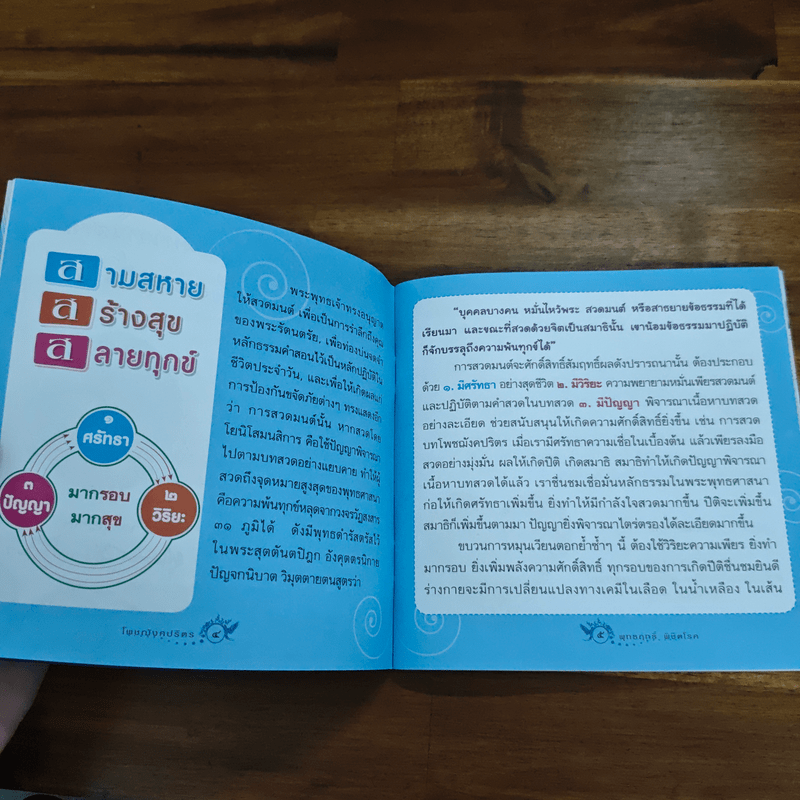 สามสหาย
สร้างสุข
สลายทุกข์
๑
ศรัทธา
๓
ปัญญา
มากรอบ
มากสุข
๒
วิริยะ
พระพุทธเจ้าทรงอนุญาต
ให้สวดมนต์ เพื่อเป็นการรำลึกถึงคุณ
ของพระรัตนตรัย, เพื่อท่องบ่นจดจำ
หลักธรรมคำสอนไว้เป็นหลักปฏิบัติใน
ชีวิตประจำวัน, และเพื่อให้เกิดผลแก่
การป้องกันขจัดภัยต่างๆ ทรงแสดงอีก
ว่า การสวดมนต์นั้น หากสวดโดย
โยนิโสมนสิการ คือใช้ปัญญาพิจารณา
ไปตามบทสวดอย่างแยบคาย ทำให้ผู้
สวดถึงจุดหมายสูงสุดของพุทธศาสนา
คือความพ้นทุกข์หลุดจากวงจรวัฏสงสาร
๓๑ ภูมิได้ ดังมีพุทธดำรัสตรัสไว้
ในพระสุตตันตปิฎก อังคุตตรนิกาย
ปัญจกนิบาต วิมุตตายตนสูตรว่า
โพชฌังคปริตร
๔
"บุคคลบางคน หมั่นไหว้พระ สวดมนต์ หรือสาธยายข้อธรรมที่ได้
เรียนมา และขณะที่สวดด้วยจิตเป็นสมาธินั้น เขาน้อมข้อธรรมมาปฏิบัติ
ก็จักบรรลุถึงความพ้นทุกข์ได้"
การสวดมนต์จะศักดิ์สิทธิ์สัมฤทธิ์ผลดังปรารถนานั้น ต้องประกอบ
ด้วย ๑. มีศรัทธา อย่างสุดชีวิต ๒. มีวิริยะ ความพยายามหมั่นเพียรสวดมนต์
และปฏิบัติตามคำสวดในบทสวด ๓. มีปัญญา พิจารณาเนื้อหาบทสวด
อย่างละเอียด ช่วยสนับสนุนให้เกิดความศักดิ์สิทธิ์ยิ่งขึ้น เช่น การสวด
บทโพชฌังคปริตร เมื่อเรามีศรัทธาความเชื่อในเบื้องต้น แล้วเพียรลงมือ
สวดอย่างมุ่งมั่น ผลให้เกิดปีติ เกิดสมาธิ สมาธิทำให้เกิดปัญญาพิจารณา
เนื้อหาบทสวดได้แล้ว เราชื่นชมเชื่อมั่นหลักธรรมในพระพุทธศาสนา
ก่อให้เกิดศรัทธาเพิ่มขึ้น ยิ่งทำให้มีกำลังใจสวดมากขึ้น ปีติจะเพิ่มขึ้น
สมาธิก็เพิ่มขึ้นตามมา ปัญญายิ่งพิจารณาไตร่ตรองได้ละเอียดมากขึ้น
ขบวนการหมุนเวียนตอกย้ำซ้ำๆ นี้ ต้องใช้วิริยะความเพียร ยิ่งทำ
มากรอบ ยิ่งเพิ่มพลังความศักดิ์สิทธิ์ ทุกรอบของการเกิดปีติชื่นชมยินดี
ร่างกายจะมีการเปลี่ยนแปลงทางเคมีในเลือด ในน้ำเหลือง ในเส้น
๕
พุทธฤทธิ์ พิชิตโรค